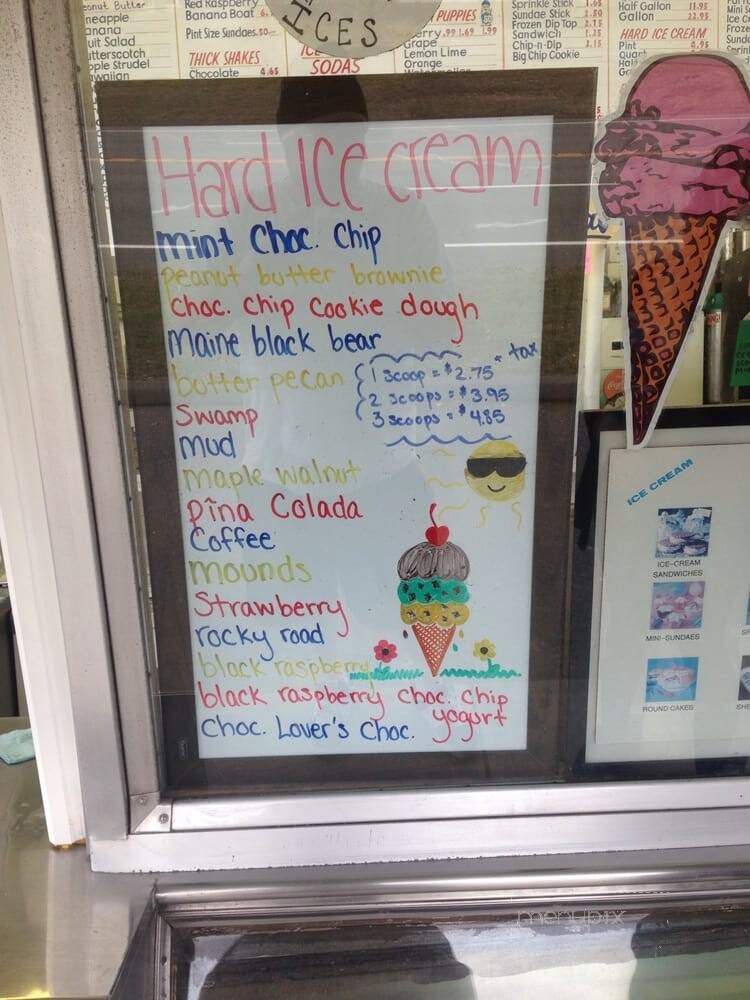 Red Raspberry
Banana Boat
Pint Size Sundaes
THICK SHAKES
Chocolate 4.65
ICES
SODAS
PUPPIES
.99 1.69 1.99
Grape
Lemon Lime
Orange
Sprinkle Stick
Sundae Stick
Frozen Dip Top 2.15
Sandwich 1.25
Chip-n-Dip
Big Chip Cookie
Half Gallon 11.95
Gallon 22.95
HARD ICE CREAM
Pint 4.95
Peanut Butter
Pineapple
Banana
Fruit Salad
Butterscotch
Apple Strudel
Hawaiian
Hard Ice cream
mint Choc. Chip
peanut butter brownie
Choc. Chip Cookie dough
Maine black bear
butter pecan
1 scoop = $2.75 + tax
2 scoops = $3.95
3 scoops = $4.85
Swamp
mud
maple walnut
Pîna Colada
Coffee
mounds
Strawberry
rocky road
black raspberry
black raspberry choc. chip
yogurt
Choc. Lover's Choc.
ICE CREAM
ICE-CREAM
SANDWICHES
MINI-SUNDAES
ROUND CAKES
menupix